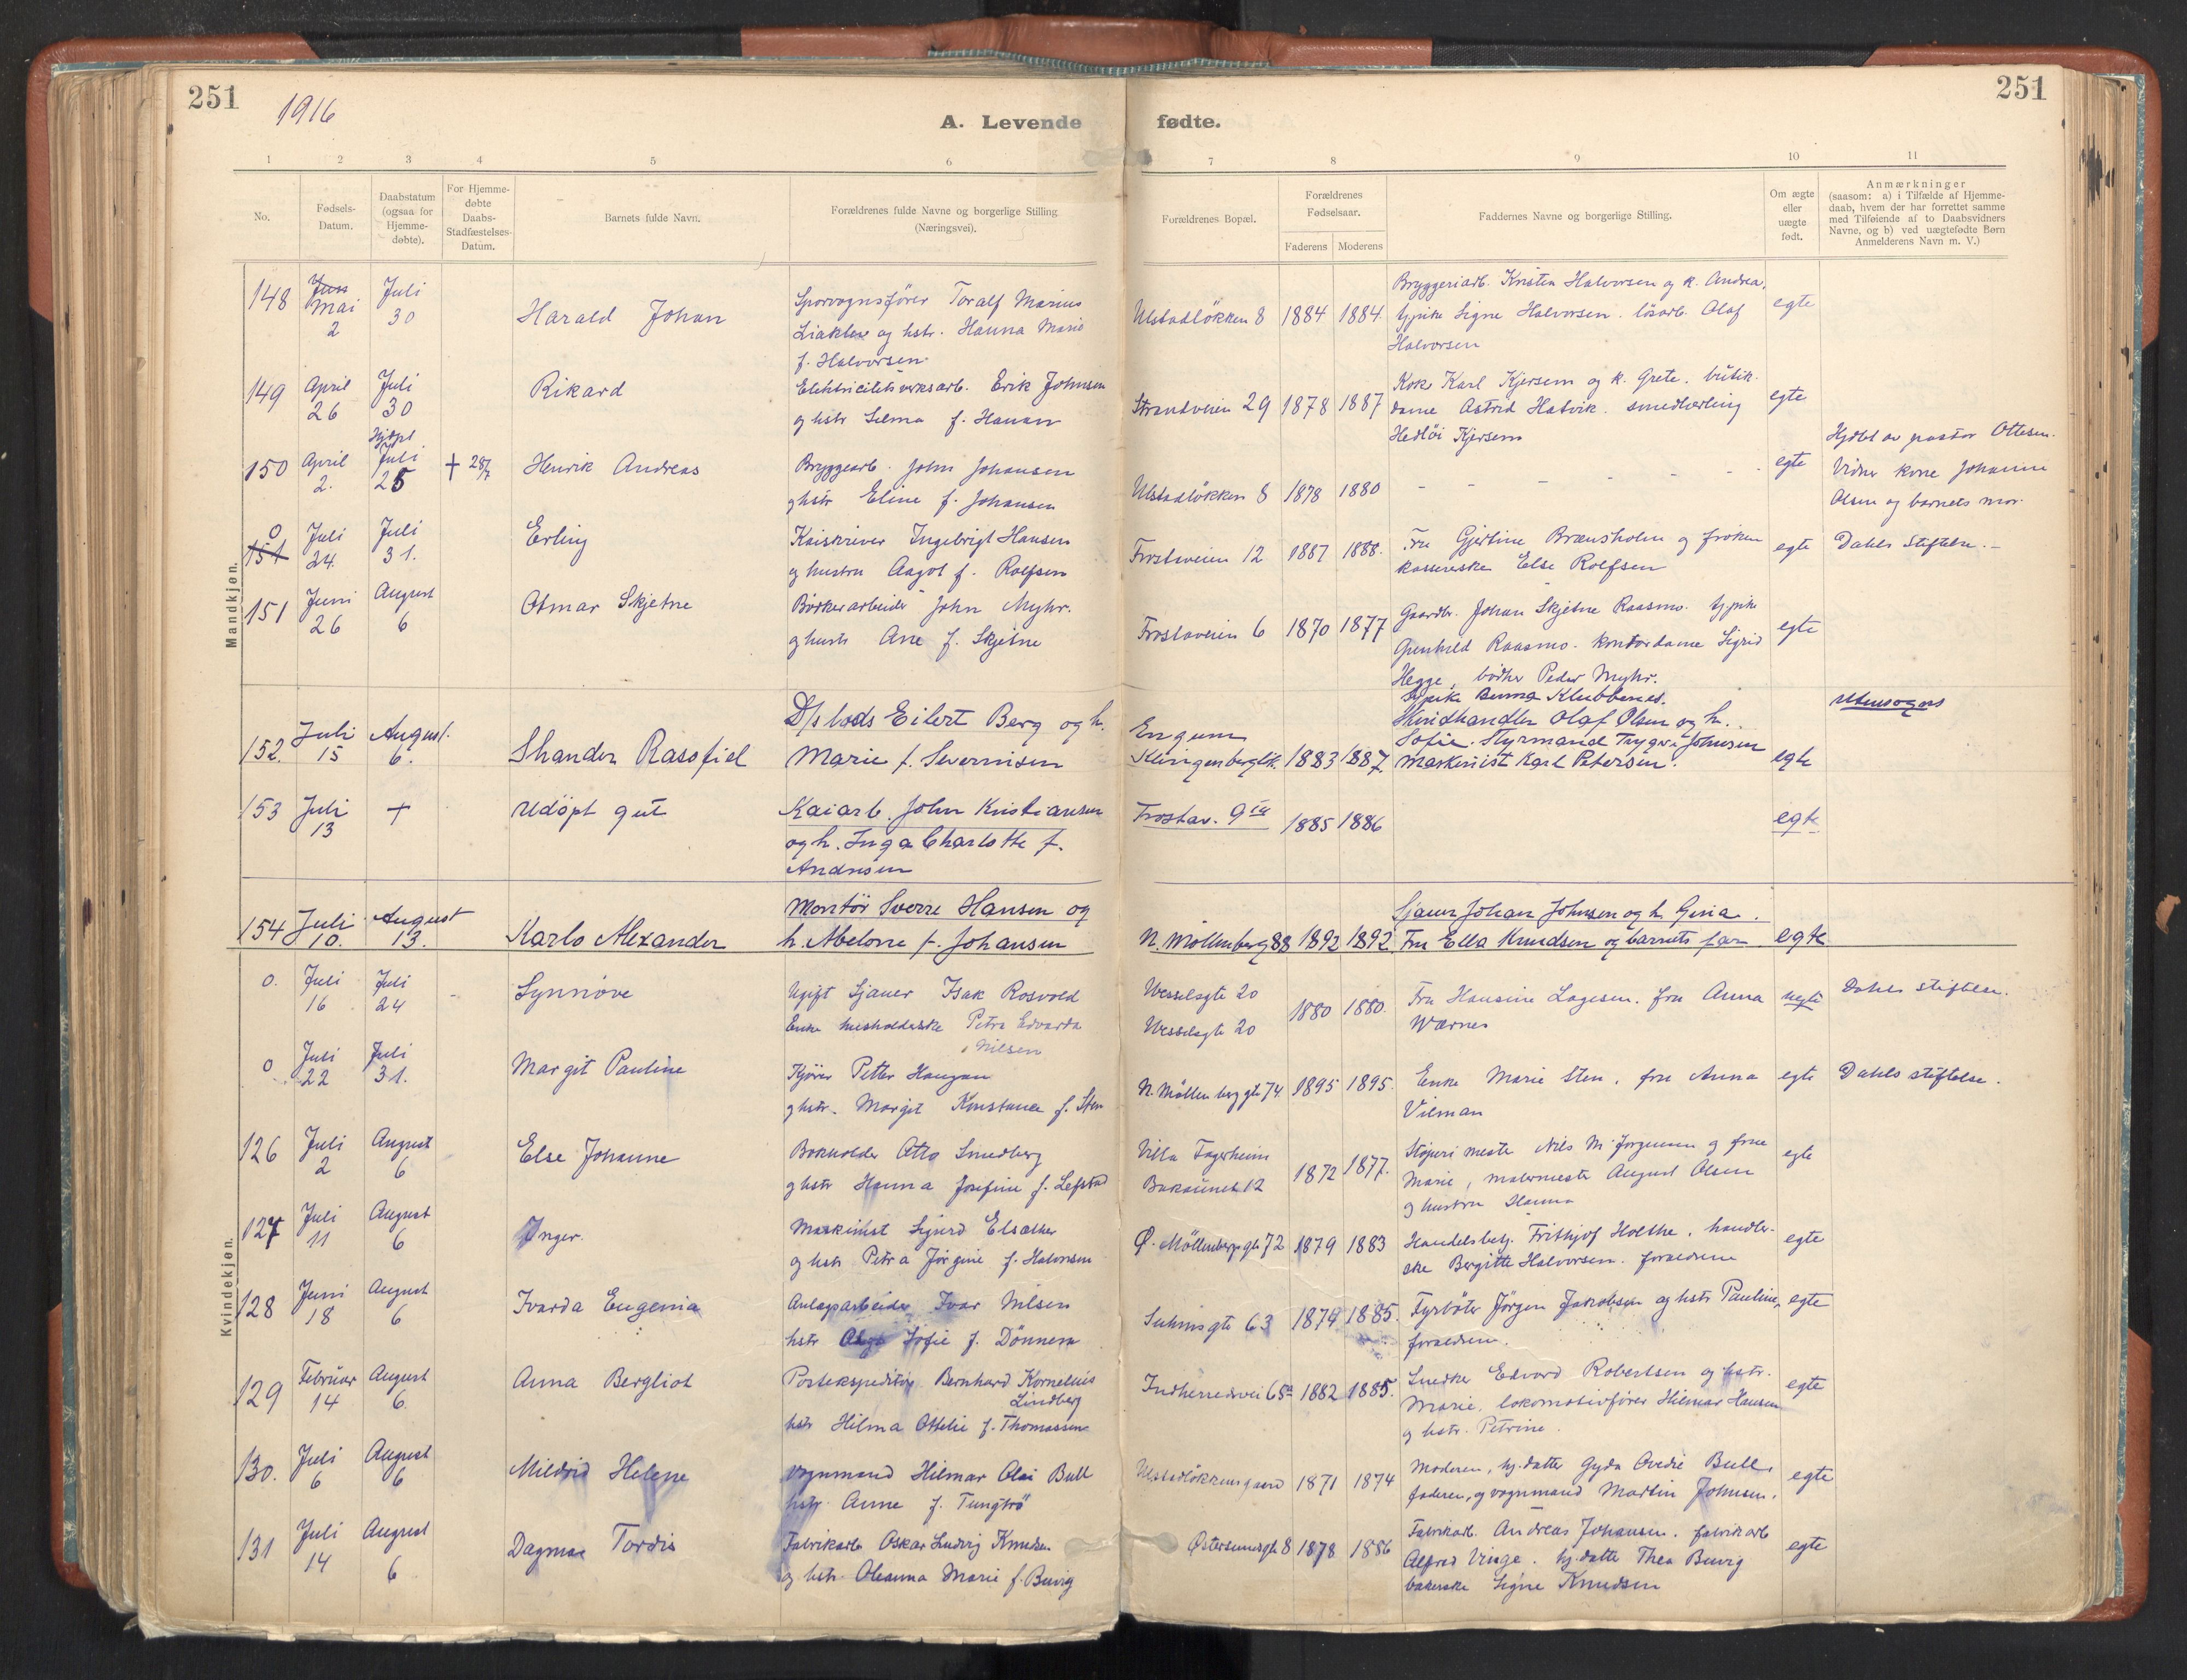 251
1916
A. Levende fødte.
251
1 2 3 4 5 6 7 8 9 10 11
No.
Fødsels-
Datum.
Daabstatum
(ogsaa for
Hjemme-
døbte).
For Hjemme-
døbte
Daabs-
Stadfæstelses-
Datum.
Barnets fulde Navn.
Forældrenes fulde Navne og borgerlige Stilling
(Næringsvei).
Forældrenes Bopæl.
Forældrenes
Fødselsaar.
Faderens Moderens
Faddernes Navne og borgerlige Stilling.
Om ægte
eller
uægte
født.
Anmærkninger
(saasom: a) i Tilfælde af Hjemme-
daab, hvem der har forrettet samme
med Tilføiende af to Daabsvidners
Navne, og b) ved uægtefødte Børn
Anmelderens Navn m. V.)
Mandkjøn.
148 Mai 2 Juli 30
Harald Johan
Sporvognsfører Toralf Marius
og hstr. Hanna Marie
f. Halvorsen.
Ulstadløkken 8 1884 1884.
Bryggeriarb. Kristen Halvorsen og k. Andrea,
tjpike Signe Halvorsen. løsarb. Olaf
Halvorsen
egte
149 April 26 Juli 30
Rikard
Elektricitetsverksarb. Erik Johnsen
og hstr Selma f. Hanan
Strandveien 29 1878 1887
Kok Karl Kjersem og k. Grete. butik-
dame Astrid Hatvik. smedlærling
Kjersem
egte
150 April 2. Hjdøpt Juli 25 + 28/7
Henrik Andreas
Bryggearb. John Johansen
og hstr Eline f. Johansen
Ulstadløkken 8 1878 1880
- - - - - -
egte
Hjdøbt av pastor Ottesen.
Vidner kone Johanne
Olsen og barnets mor.
0
151 Juli 24. Juli 31.
Erling
Kaiskriver Ingebrigt Hansen
og hustru Aagot f. Rolfsen
Frostaveien 12 1887 1888.
Fru Gjertine Brænsholm og frøken
kassererske Else Rolfsen
egte
Dahls Stiftelse. -
151 Juni 26 August 6
Otmar Skjetne
Børkerarbeider John Myhr.
og hustr Ane f. Skjetne
Frostaveien 6 1870 1877
Gaardbr. Johan Skjetne Raasmo. tjpike
Gunhild Raasmo. kontordame Sigrid
Hegge, bødker Peder Myhr.
egte
152. Juli 15 August. 6.
Shander Rasofiel
D/s lods Eilert Berg og h.
Marie f. Severinsen
Engum
Klingenberglk. 1883 1887.
tjpike Benna Klubbenes.
Skindhandler Olaf Olsen og h.
Sofie. Styrmand Trygve Johnsen
Maskinist Karl Petersen.
egte
utensogns
153 Juli 13 +
Udøpt gut
Kaiarb. John Kristiansen
og h. Inga Charlotte f.
Andresen
Frostav. 9 1885 1886
egte
154 Juli 10. August 13.
Karlo Alexander
Montør Sverre Hansen og
h. Abelone f. Johansen
N. Møllenberg 88 1892 1892.
Sjauer Johan Johnsen og h. Gina.
Fru Ella Knudsen og barnets far
egte
Kvindekjøn.
0. Juli 16 Juli 24 -
Synnøve
Ugift Sjauer Isak Rosvold
Enke husholderske Petra Edvarda
Nilsen
Wesselsgte 20
Wesselsgte 20
1880 1880.
Fru Hansine Lagesen. fru Anna
Wærnes
uegte
Dahls stiftelse.
0 Juli 22 Juli 31.
Margit Pauline
Kjører Petter Haugan
og hstr. Margit Konstanse f. Sten
N. Møllenberggt. 74. 1895 1895.
Enke Marie Sten. fru Anna
Vilman
egte
Dahls stiftelse.
126 Juli 2 August 6
Else Johanne
Bokholder Otto Smedberg
og hstr Hanna Josefine f. Lefstad
Villa Fagerheim
Bakaunet 12
1872 1877.
Støperimester Nils M. Jørgensen og frue
Marie, malermester August Olsen
og hustru Hanna
egte
127 Juli 11 August 6
Inger.
Maskinist Sigurd Elsæther
og hstr Petra Jørgine f. Halvorsen
Ø. Møllenbergsgt. 72 1879 1883
Handelsbetj. Frithjof Holthe. handler-
ske Bergitte Halvorsen. forældrene
egte
128 Juni 18 August 6
Ivarda Eugenia
Anlægsarbeider Ivar Nilsen
hstr Olga Sofie f. Dønnem
Suhmsgte 63 1874 1885.
Fyrbøter Jørgen Jakobsen og hstr Pauline,
forældrene.
egte
129 Februar 14 August 6.
Anna Bergliot
Postekspeditør Bernhard Kornelius
Lindberg
hstr Hilma Ottelie f. Thomassen
Indherredsvei 65a 1882 1885.
Snedker Edvard Robertsen og hstr.
Marie. lokomotivfører Hilmar Hansen
og hstr. Petrine.
egte
130. Juli 6 August 6
Mildrid Helene
Vognmand Hilmar Olai Bull
hstr. Anne f. Tungtrø
Ulstadløkkens gaard 1871 1874
Moderen, hj.datter Gyda Ovedie Bull,
faderen, og vognmand Martin Johnsen.
egte
131 Juli 14 August 6
Dagmar Tordis
Fabrikarb Oskar Ludvig Knudsen
og hstr. Oleanna Marie f. Buvig
Østersundsgt. 8 1878 1886
Fabrikarb. Andreas Johansen. fabrikarb
Alfred Vinge. hj.datter Thea Buvig
bakerske Signe Knudsen
egte